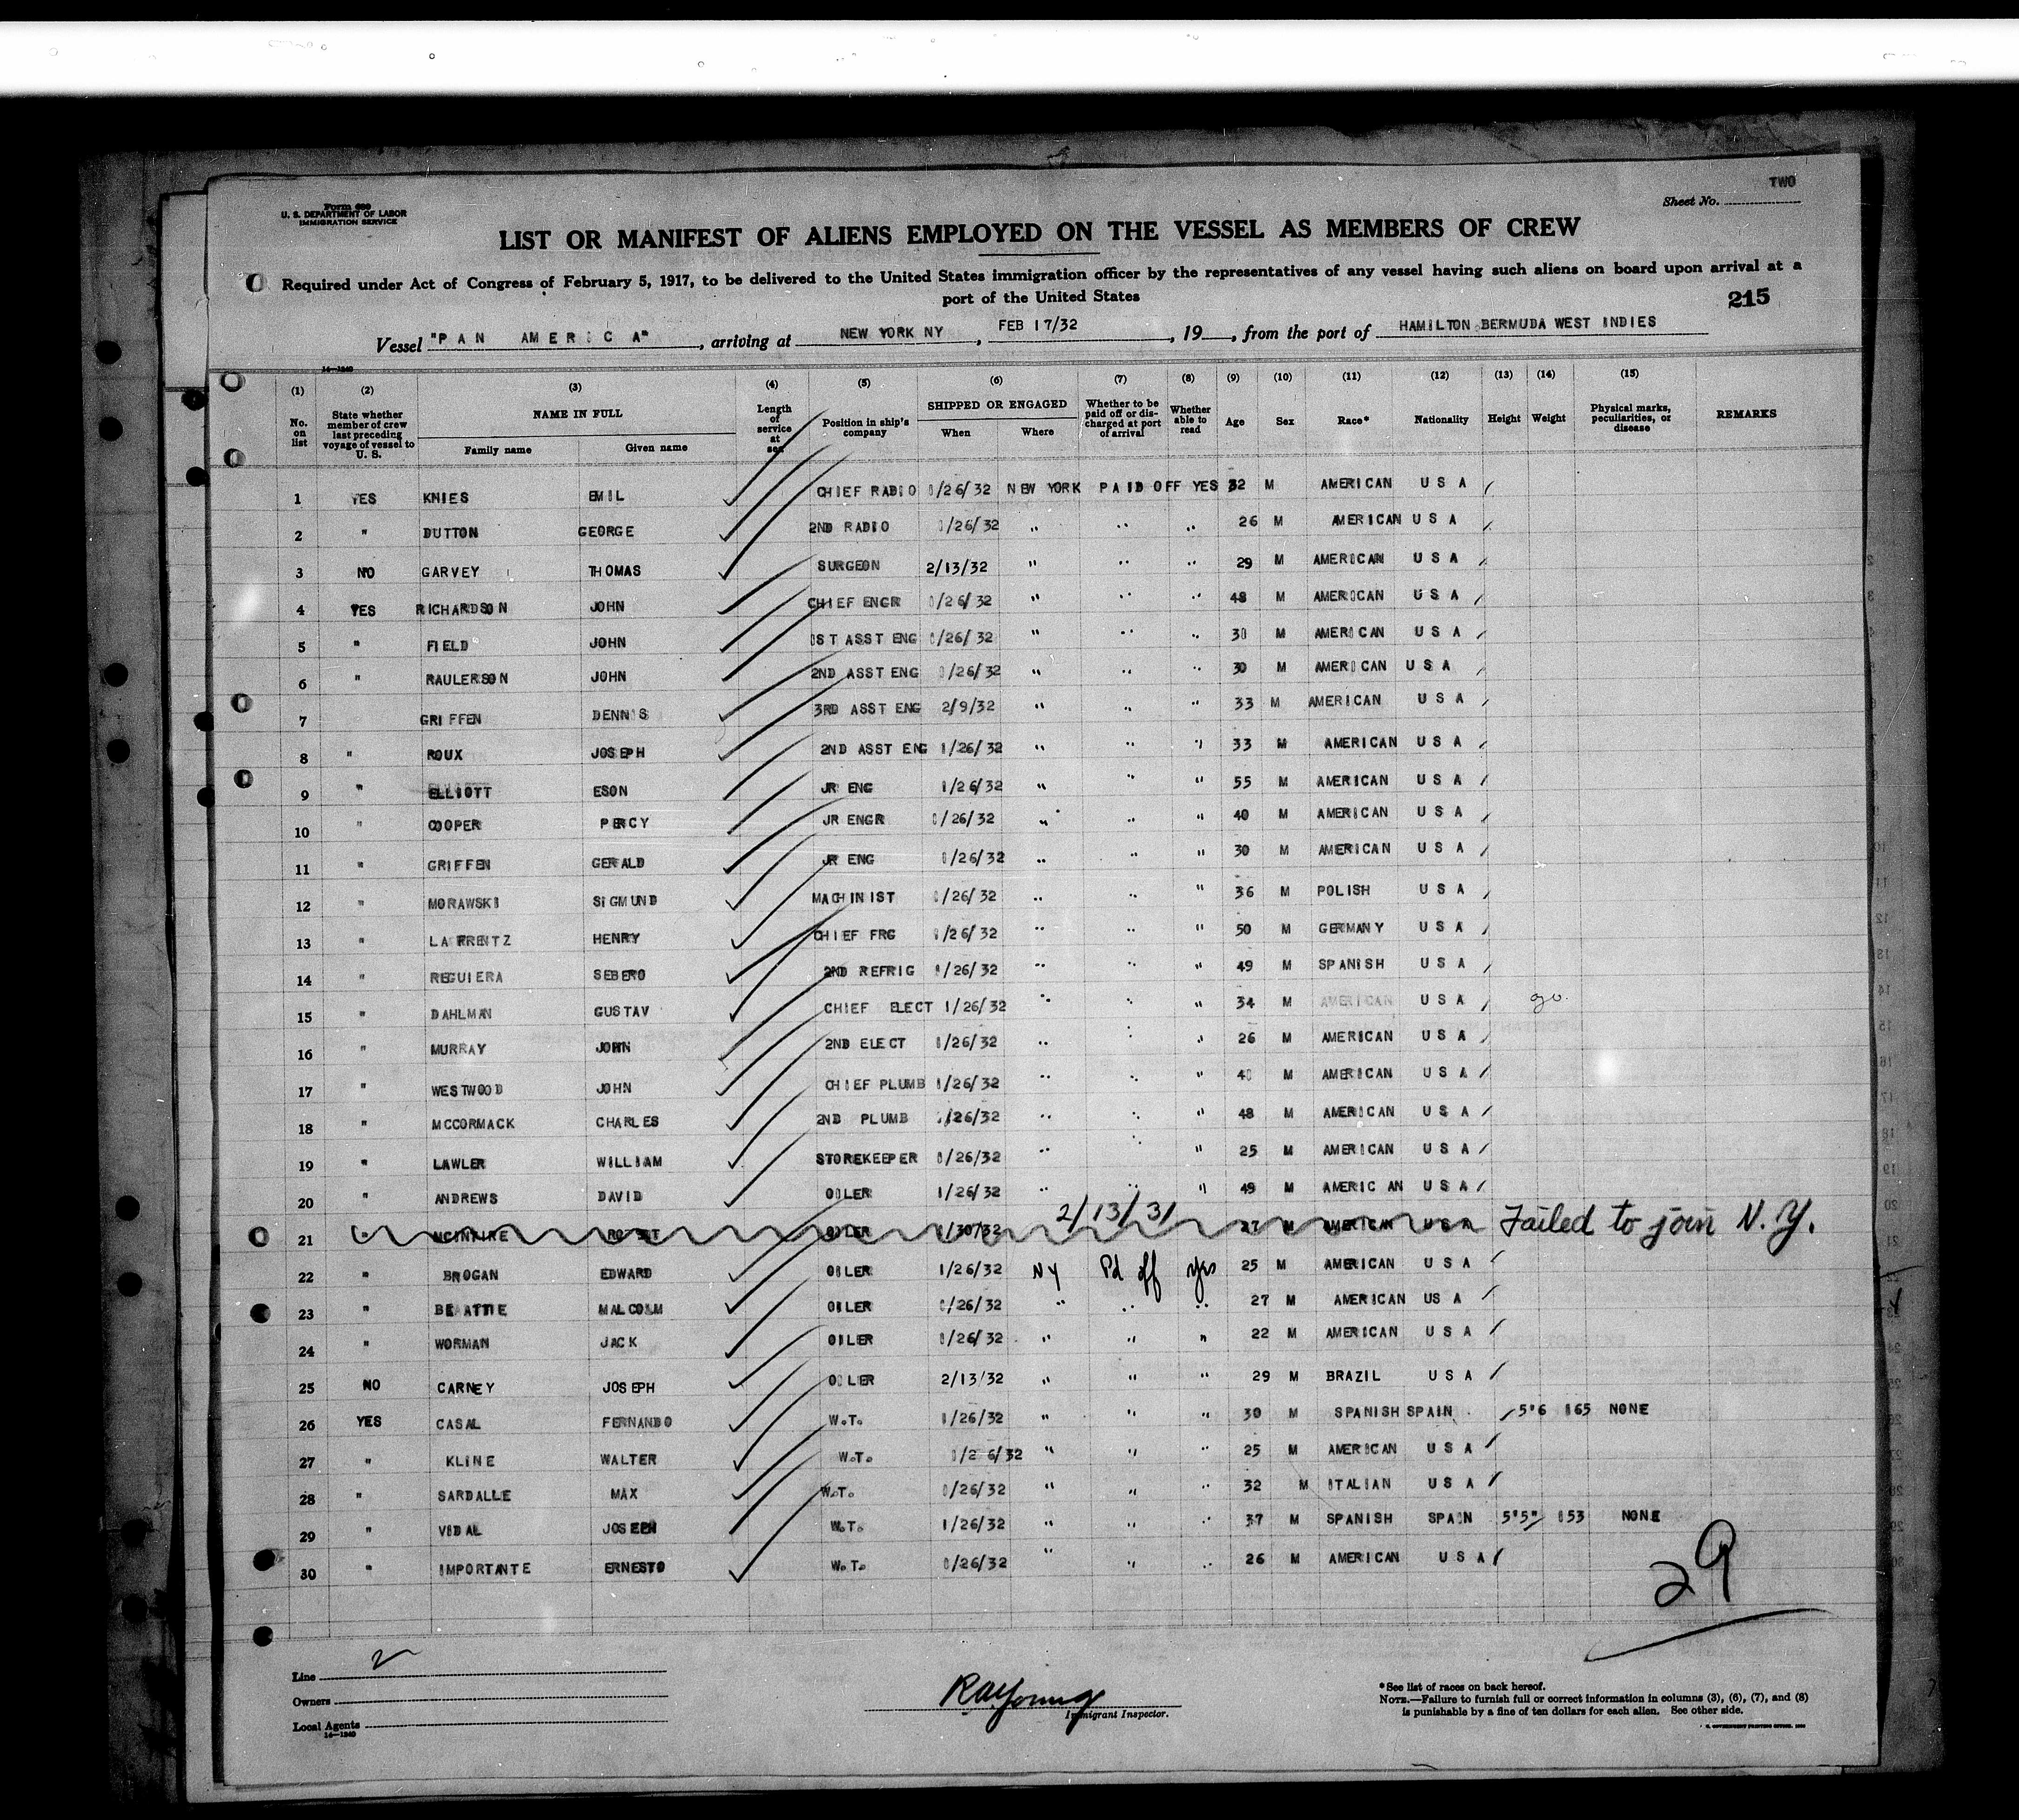 TWO
Form 689
U. S. DEPARTMENT OF LABOR
IMMIGRATION SERVICE
Sheet No.
LIST OR MANIFEST OF ALIENS EMPLOYED ON THE VESSEL AS MEMBERS OF CREW
Required under Act of Congress of February 5, 1917, to be delivered to the United States immigration officer by the representatives of any vessel having such aliens on board upon arrival at a
port of the United States
215
Vessel "PAN AMERICA", arriving at NEW YORK NY, FEB 17/32, 19, from the port of HAMILTON BERMUDA WEST INDIES
14—1240
(1) (2) (3) (4) (5) (6) (7) (8) (9) (10) (11) (12) (13) (14) (15)
No. on list State whether member of crew last preceding voyage of vessel to U. S. NAME IN FULL Family name Given name Length of service at sea Position in ship's company SHIPPED OR ENGAGED When Where Whether to be paid off or discharged at port of arrival Whether able to read Age Sex Race* Nationality Height Weight Physical marks, peculiarities, or disease REMARKS
1 YES KNIES EMIL CHIEF RADIO 1/26/32 NEW YORK PAID OFF YES 32 M AMERICAN U S A
2 " DUTTON GEORGE 2ND RADIO 1/26/32 " " " 26 M AMERICAN U S A
3 NO GARVEY THOMAS SURGEON 2/13/32 " " " 29 M AMERICAN U S A
4 YES RICHARDSON JOHN CHIEF ENGR 1/26/32 " " " 48 M AMERICAN U S A
5 " FIELD JOHN 1ST ASST ENG 1/26/32 " " " 30 M AMERICAN U S A
6 " RAULERSON JOHN 2ND ASST ENG 1/26/32 " " " 30 M AMERICAN U S A
7 GRIFFEN DENNIS 3RD ASST ENG 2/9/32 " " " 33 M AMERICAN U S A
8 " ROUX JOSEPH 2ND ASST ENG 1/26/32 " " " 33 M AMERICAN U S A
9 " ELLIOTT ESON JR ENG 1/26/32 " " " 55 M AMERICAN U S A
10 " COOPER PERCY JR ENGR 1/26/32 " " " 40 M AMERICAN U S A
11 " GRIFFEN GERALD JR ENG 1/26/32 " " " 30 M AMERICAN U S A
12 " MORAWSKI SIGMUND MACHINIST 1/26/32 " " " 36 M POLISH U S A
13 " HENRY CHIEF FRG 1/26/32 " " " 50 M GERMANY U S A
14 " REGUIERA SEBERO 2ND REFRIG 1/26/32 " " " 49 M SPANISH U S A
15 " DAHLMAN GUSTAV CHIEF ELECT 1/26/32 " " " 34 M AMERICAN U S A
16 " MURRAY JOHN 2ND ELECT 1/26/32 " " " 26 M AMERICAN U S A
17 " WESTWOOD JOHN CHIEF PLUMB 1/26/32 " " " 40 M AMERICAN U S A
18 " MCCORMACK CHARLES 2ND PLUMB 1/26/32 " " " 48 M AMERICAN U S A
19 " LAWLER WILLIAM STOREKEEPER 1/26/32 " " " 25 M AMERICAN U S A
20 " ANDREWS DAVID OILER 1/26/32 " " " 49 M AMERICAN U S A
21 " OILER 1/30/32 2/13/31 M AMERICAN U S A Failed to join N.Y.
22 " BROGAN EDWARD OILER 1/26/32 NY Pd off yes 25 M AMERICAN U S A
23 " BEATTIE MALCOLM OILER 1/26/32 " " " 27 M AMERICAN US A
24 " WORMAN JACK OILER 1/26/32 " " " 22 M AMERICAN U S A
25 NO CARNEY JOSEPH OILER 2/13/32 " " " 29 M BRAZIL U S A
26 YES CASAL FERNANDO W.T. 1/26/32 " " " 30 M SPANISH SPAIN 5'6 165 NONE
27 " KLINE WALTER W.T. 1/26/32 " " " 25 M AMERICAN U S A
28 " SARDALLE MAX W.T. 1/26/32 " " " 32 M ITALIAN U S A
29 " VIDAL JOSEPH W.T. 1/26/32 " " " 37 M SPANISH SPAIN 5'5" 153 NONE
30 " IMPORTANTE ERNESTO W.T. 1/26/32 " " " 26 M AMERICAN U S A
29
Line
Owners
Local Agents
14—1240
Immigrant Inspector.
*See list of races on back hereof.
NOTE.—Failure to furnish full or correct information in columns (3), (6), (7), and (8)
is punishable by a fine of ten dollars for each alien. See other side.